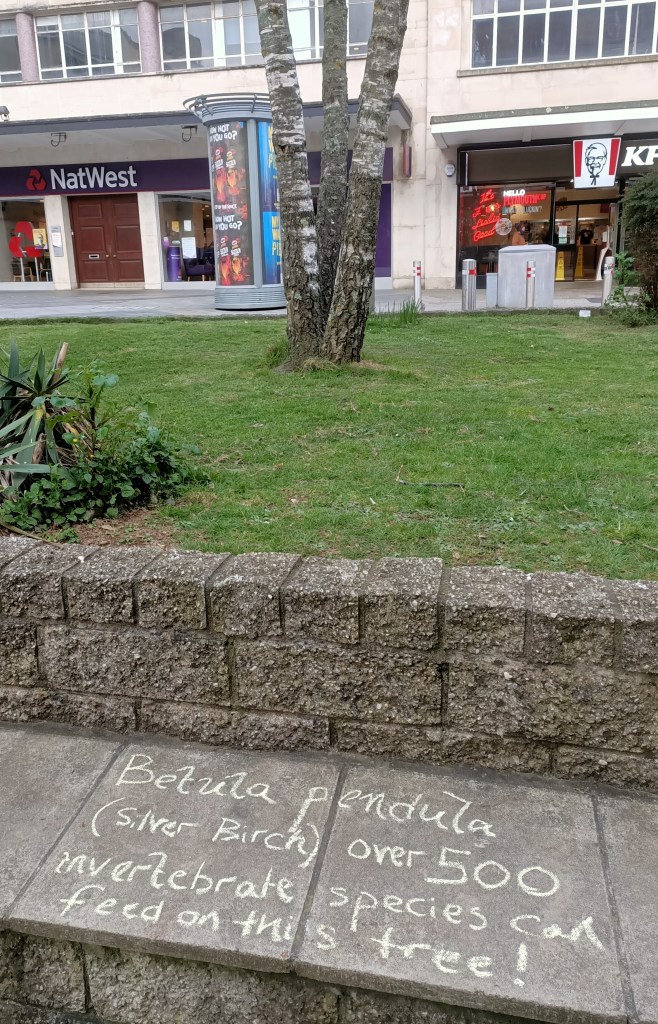 NatWest
HOW HOT
YOU GO?
HOW HOT
YOU GO?
KF
HELLO
PLYMOUTH
Betula pendula
(silver Birch) over 500
invertebrate species can
feed on this tree!